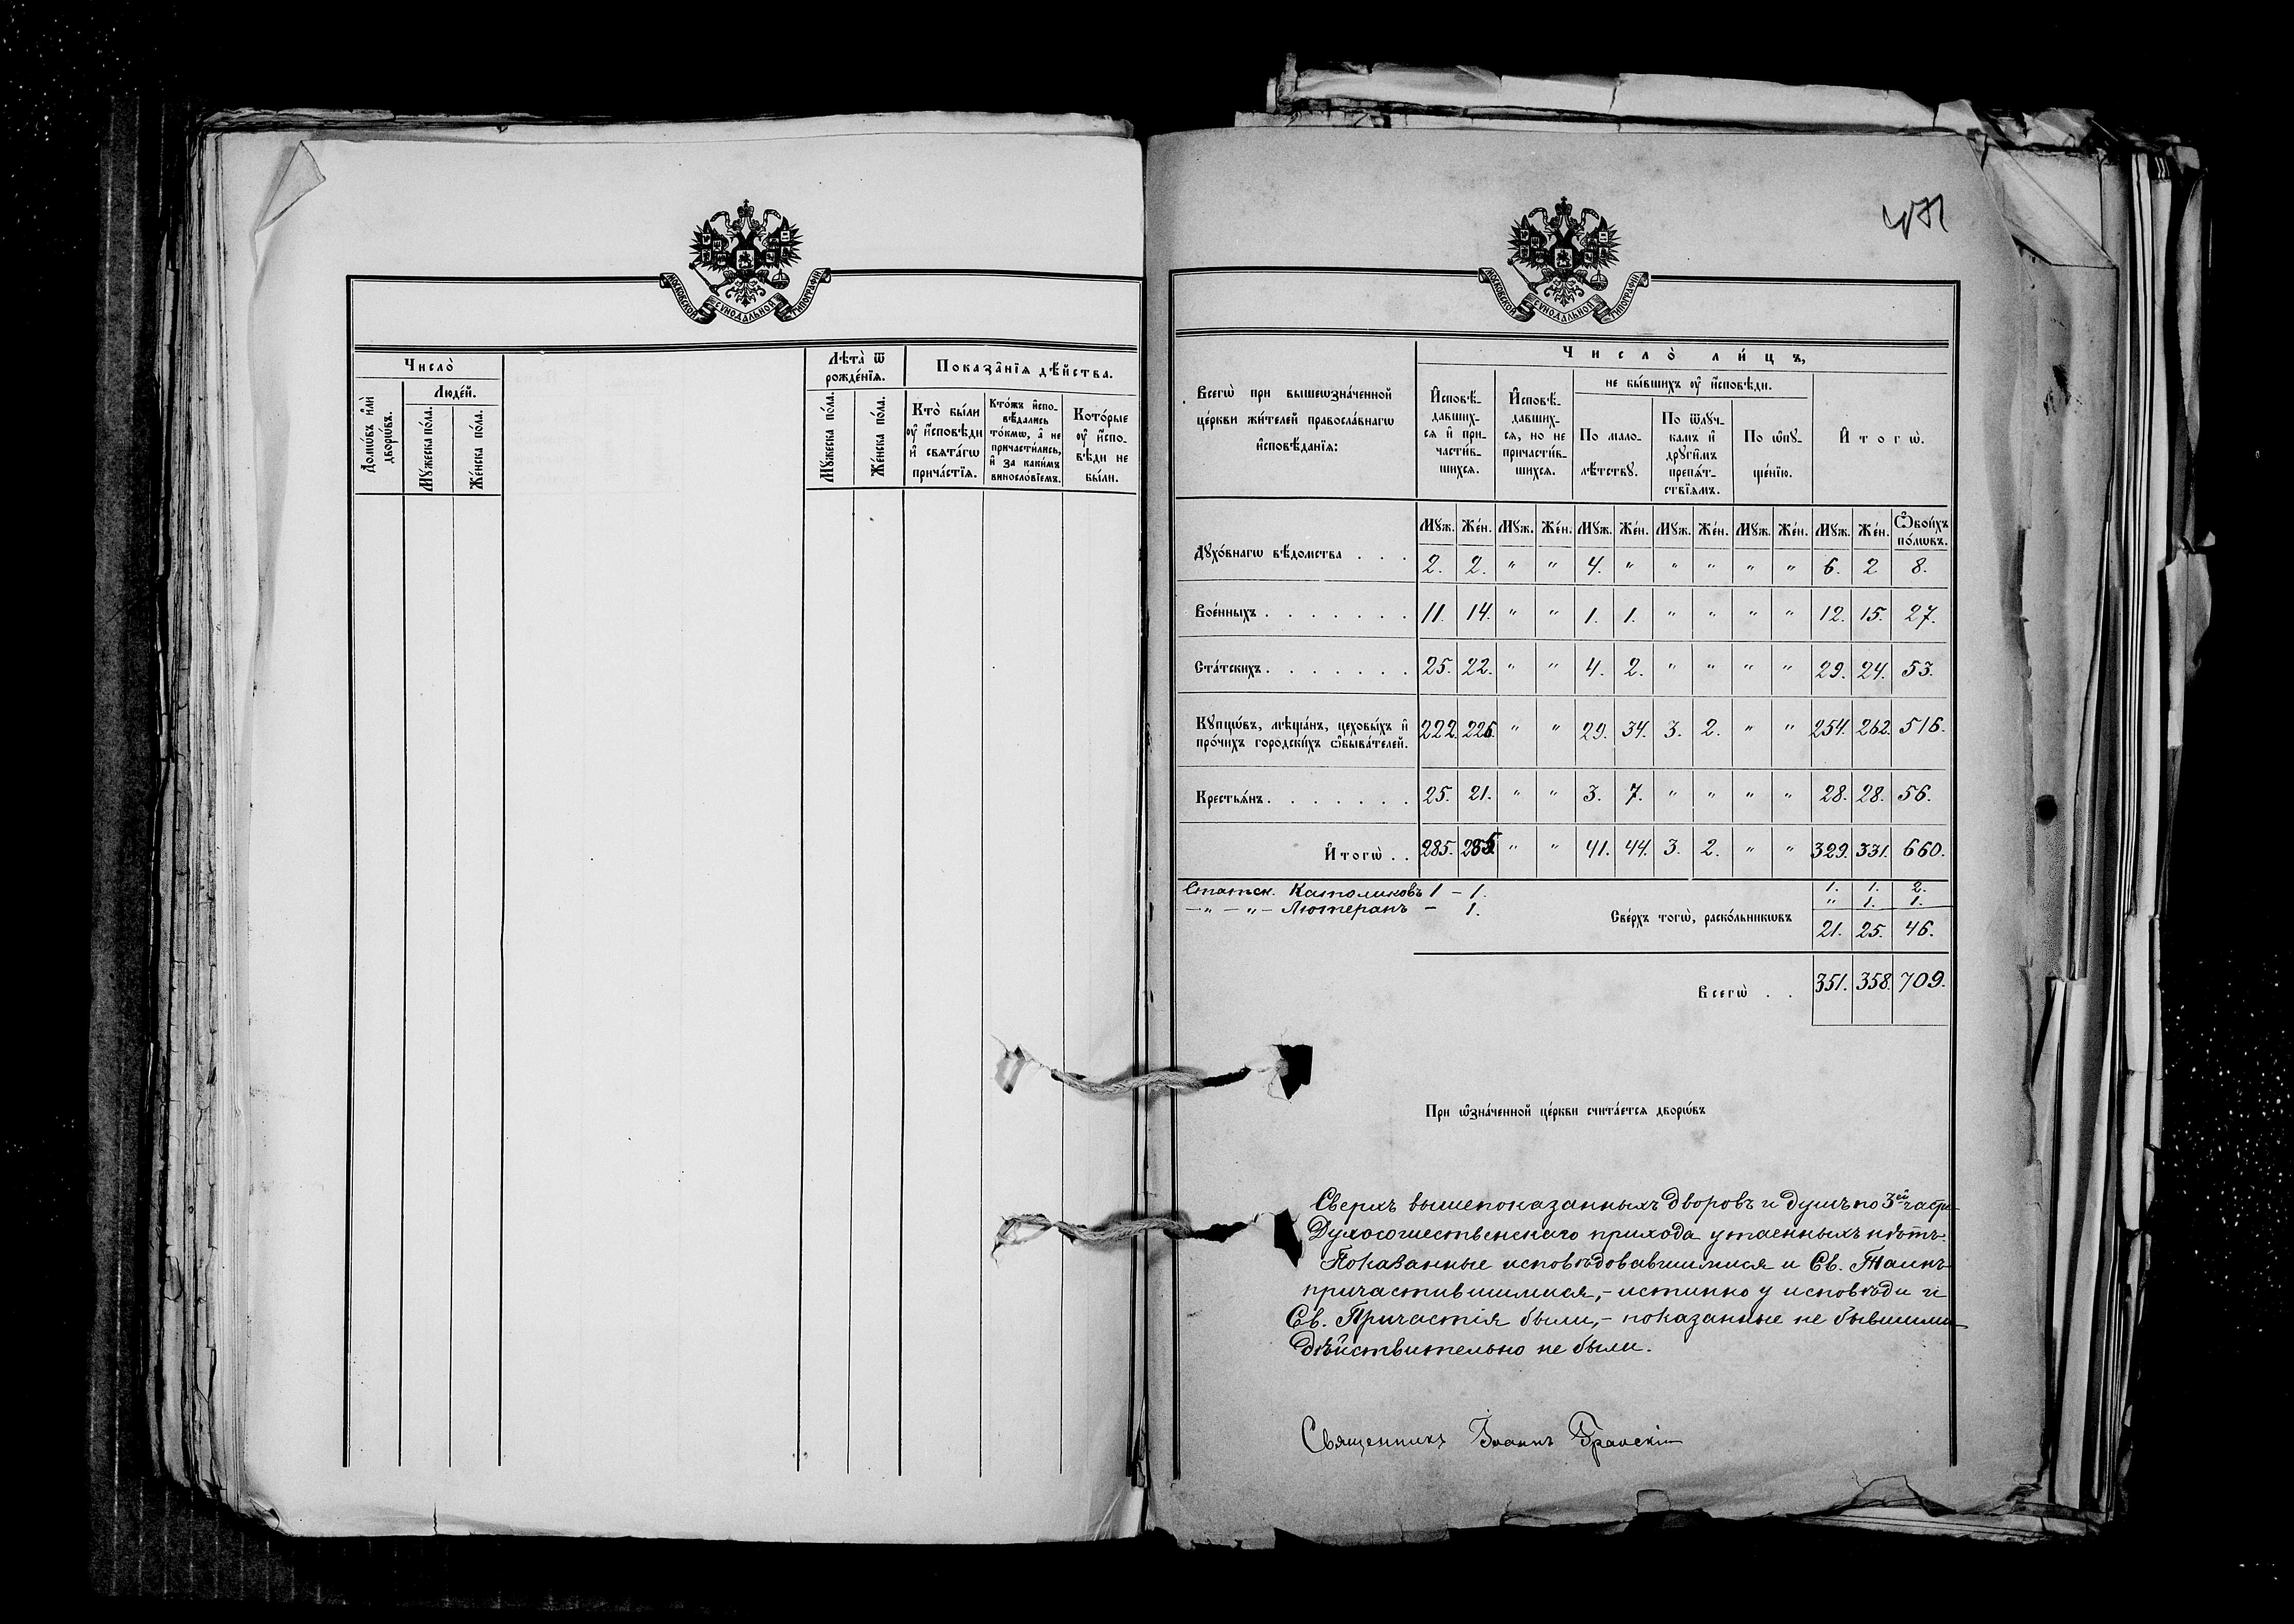 МОСКОВСКОЙ СѴНОДАЛЬНОЙ ТИПОГРАФІИ
Число̀
Домѡ́въ и҆лѝ дворѡ́въ.
Люде́й.
Мꙋ́жеска по́ла.
Же́нска по́ла.
Лѣта̀ ѿ рожде́нїѧ.
Мꙋ́жеска по́ла.
Же́нска по́ла.
Показа̑нїѧ дѣ́йства.
Кто̀ бы́ли ᲂу҆ и҆сповѣди и҆ свѧта́гѡ прича́стїѧ.
Кто́жъ и҆спо-
вѣдались
то́кмѡ, а҆ не
причасти́лись,
и҆ за каки́мъ
винословїемъ.
Кото́рые
ᲂу҆ и҆спо-
вѣди не
бы́ли.
МОСКОВСКОЙ СѴНОДАЛЬНОЙ ТИПОГРАФІИ
Всегѡ̀ при вышеѡзна́ченной
це́ркви жи́телей правосла́внагѡ
и҆сповѣ́данїѧ:
Число̀ ли́цъ,
И҆сповѣ-
давших-
сѧ и҆ при-
части́в-
шихсѧ.
И҆сповѣ-
давших-
сѧ, но не
причасти́в-
шихсѧ.
не бы́вшихъ ᲂу҆ и҆сповѣди.
По мало-
лѣ́тствꙋ.
По ѿлꙋч-
камъ и҆
дрꙋги̑мъ
препѧ́т-
ствїѧмъ.
По ѡ҆пꙋ-
ще́нїю.
И҆того̀.
Мꙋж. Же́н. Мꙋж. Же́н. Мꙋж. Же́н. Мꙋж. Же́н. Мꙋж. Же́н. Мꙋж. Же́н. Ѻ҆бои́хъ по́лѡвъ.
Дꙋхо́внагѡ вѣ́домства . . . 2. 2. " " 4. " " " " " 6. 2 8.
Вое́нныхъ . . . . . . . 11. 14. " " 1. 1. " " " " 12. 15. 27.
Ста́тскихъ . . . . . . . 25. 22. " " 4. 2. " " " " 29. 24. 53.
Кꙋпцѡ́въ, мѣща́нъ, цеховы́хъ и҆
про́чихъ городски́хъ ѡ҆быва́телей. 222. 226. " " 29. 34. 3. 2. " " 254. 262. 516.
Крестьѧ́нъ . . . . . . . 25. 21. " " 3. 7. " " " " 28. 28. 56.
И҆того̀ . . 285. 285 " " 41. 44. 3. 2. " " 329. 331. 660.
Статск. Католиковъ 1 - 1. 1. 1. 2.
-"- -"- Лютеранъ - 1. " 1. 1.
Све́рхъ тогѡ̀, раско́льникѡвъ 21. 25. 46.
Всегѡ̀ . . 351. 358. 709.
При ѡ҆зна́ченной це́ркви счита́етсѧ дворѡ́въ
Сверхъ вышепоказанныхъ дворовъ и душъ по 3ей части
Духосошественскаго прихода утаенныхъ нѣтъ.
Показанные исповѣдовавшимися и Св. Таинъ
причастившимися,- истинно у исповѣди и
Св. Причастія были,- показанные не бывшими
дѣйствительно не были.
Священникъ Іоаннъ